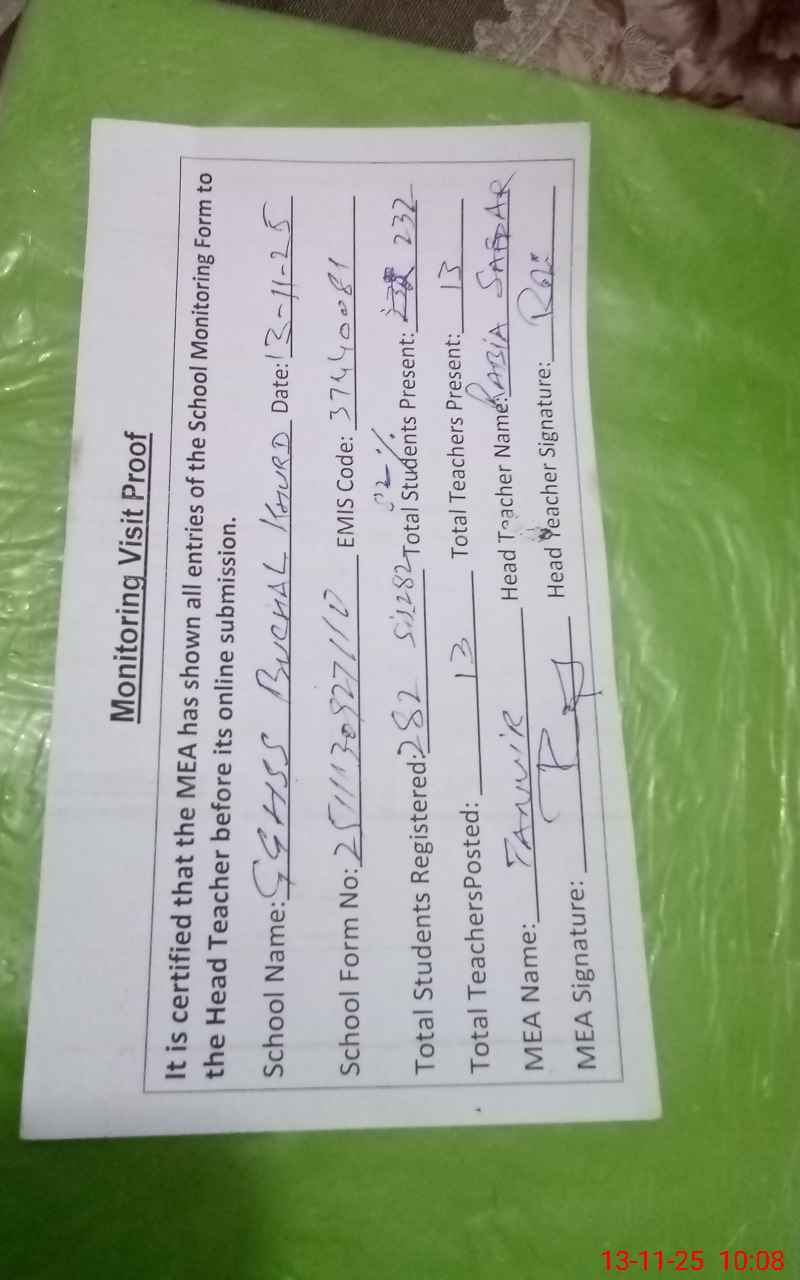 Monitoring Visit Proof
It is certified that the MEA has shown all entries of the School Monitoring Form to
the Head Teacher before its online submission.
School Name: GGHSS BUCHAL KHURD Date: 13-11-25
School Form No: 251113082711D EMIS Code: 37440081
82%
Total Students Registered: 282 SIS282 Total Students Present: 232
Total TeachersPosted: 13 Total Teachers Present: 13
MEA Name: TANVIR Head Teacher Name: RABIA SAFDAR
MEA Signature: Head Teacher Signature:
13-11-25 10:08